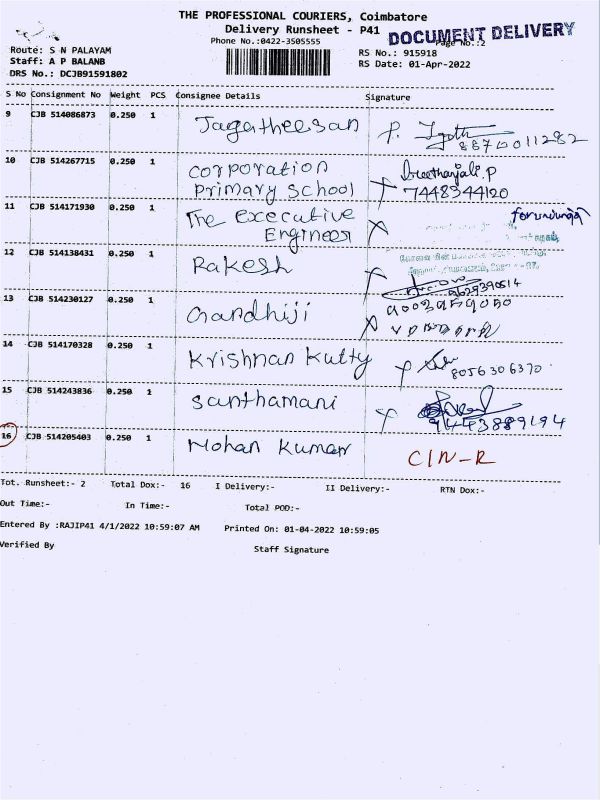 THE PROFESSIONAL COURIERS, Coimbatore
Delivery Runsheet - P41
DOCUMENT DELIVERY
Phone No.:0422-3505555
Page No.:2
Route: S N PALAYAM
RS No.: 915918
Staff: A P BALANB
RS Date: 01-Apr-2022
DRS No.: DCJB91591802
S No Consignment No Weight PCS Consignee Details Signature
9 CJB 514086873 0.250 1 Jagatheesan P. 8870011282
10 CJB 514267715 0.250 1 Corporation Primary School Sreethanjali.P 7448344120
11 CJB 514171930 0.250 1 The Executive Engineer
12 CJB 514138431 0.250 1 Rakesh 9629390514
13 CJB 514230127 0.250 1 Gandhiji
14 CJB 514170328 0.250 1 Krishnan Kutty 8056306370
15 CJB 514243836 0.250 1 Santhamani 9443889194
16 CJB 514205403 0.250 1 Mohan Kumar C/N-R
Tot. Runsheet:- 2 Total Dox:- 16 I Delivery:- II Delivery:- RTN Dox:-
Out Time:- In Time:- Total POD:-
Entered By :RAJIP41 4/1/2022 10:59:07 AM Printed On: 01-04-2022 10:59:05
Verified By Staff Signature